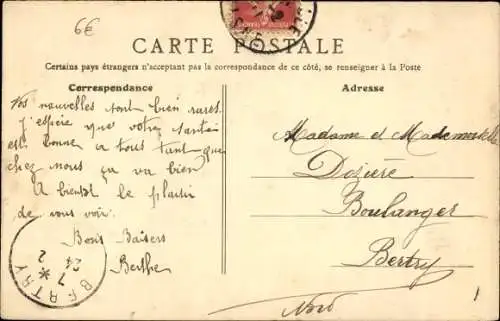 6€
CARTE POSTALE
Certains pays étrangers n'acceptant pas la correspondance de ce côté, se renseigner à la Poste
Correspondance
Adresse
Vos nouvelles sont bien rares.
J'espère que votre santée
est bonne a tous tant que
chez nous ça va bien
A bientôt le plaisir
de vous voir.
Bons Baisers
Berthe
Madame et Mademoiselle
Dozière
Boulanger
Bertry
Nord
BERTRY
7
2
1